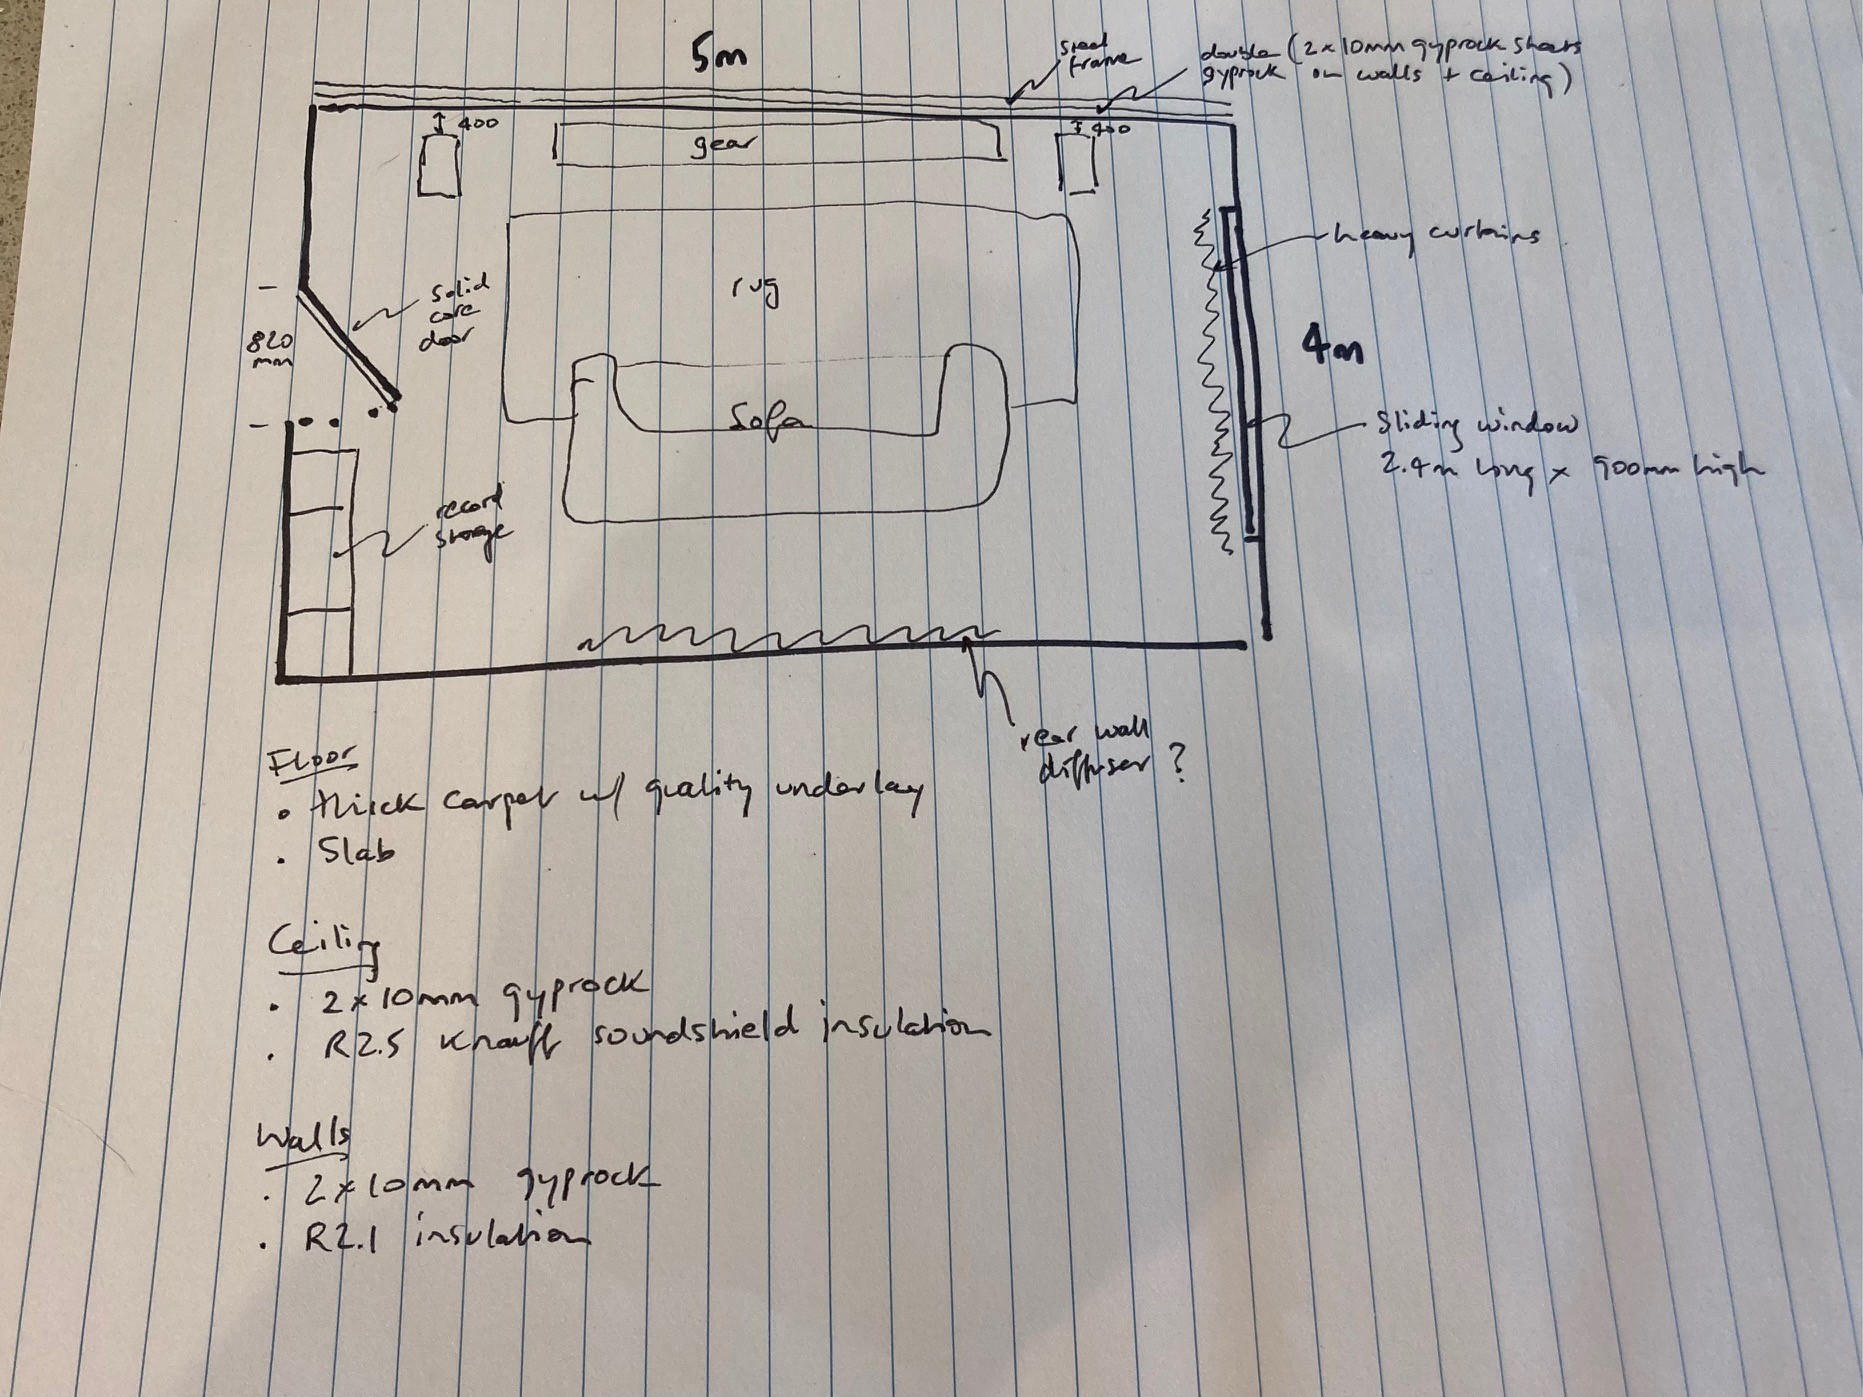 5m
steel
frame
double (2x10mm gyprock sheets
gyprock on walls + ceiling)
400
gear
400
heavy curtains
rug
solid
core
door
820
mm
4m
Sofa
Sliding window
2.4m long x 900mm high
record
storage
rear wall
diffuser ?
Floor
• thick carpet w/ quality underlay
• Slab
Ceiling
• 2x10mm gyprock
• R2.5 Knauff soundshield insulation
Walls
• 2x10mm gyprock
• R2.1 insulation